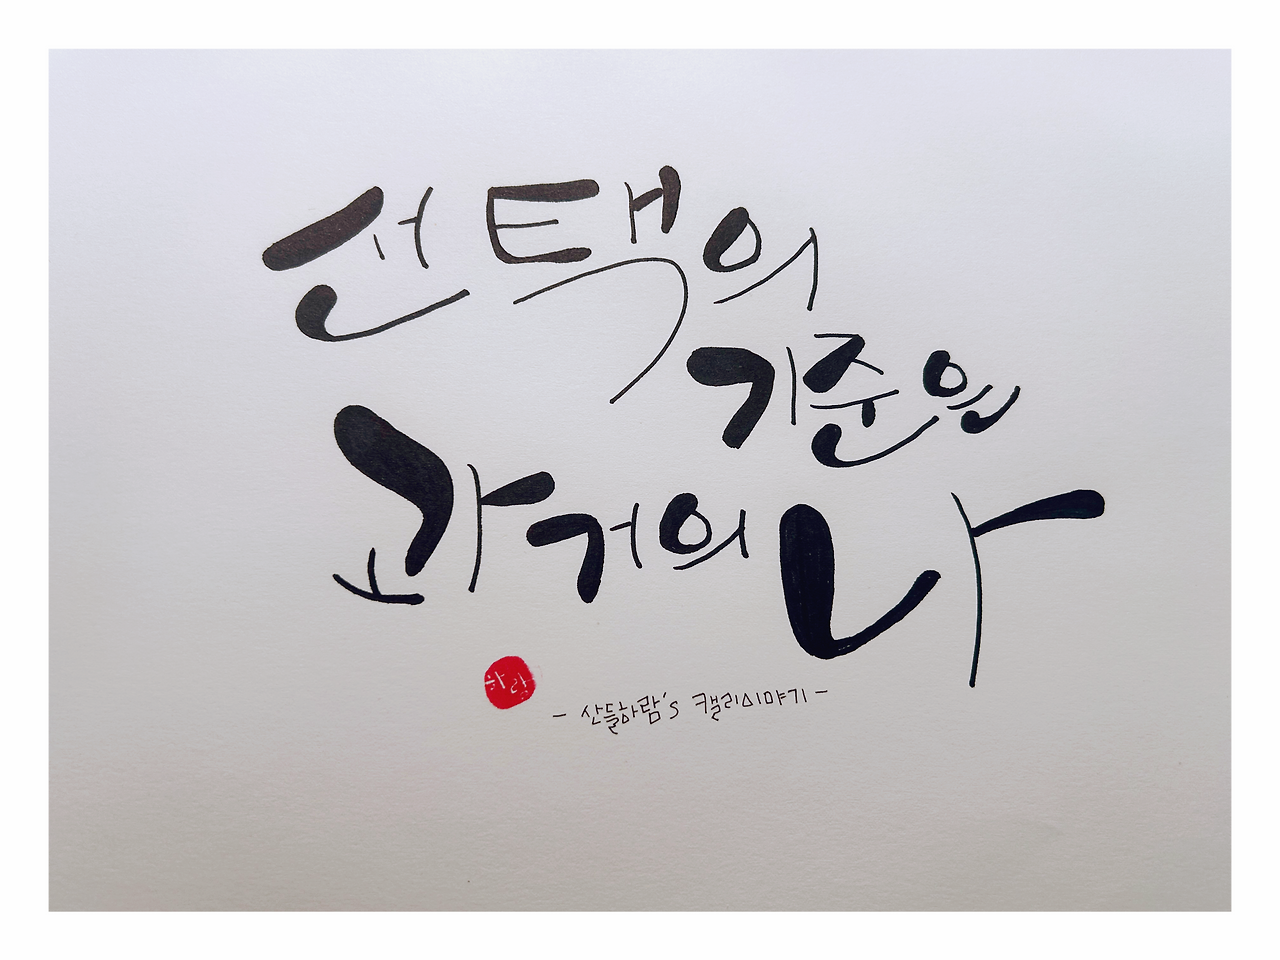 선택의
기준은
과거의 나
하람
- 산들하람's 캘리이야기 -